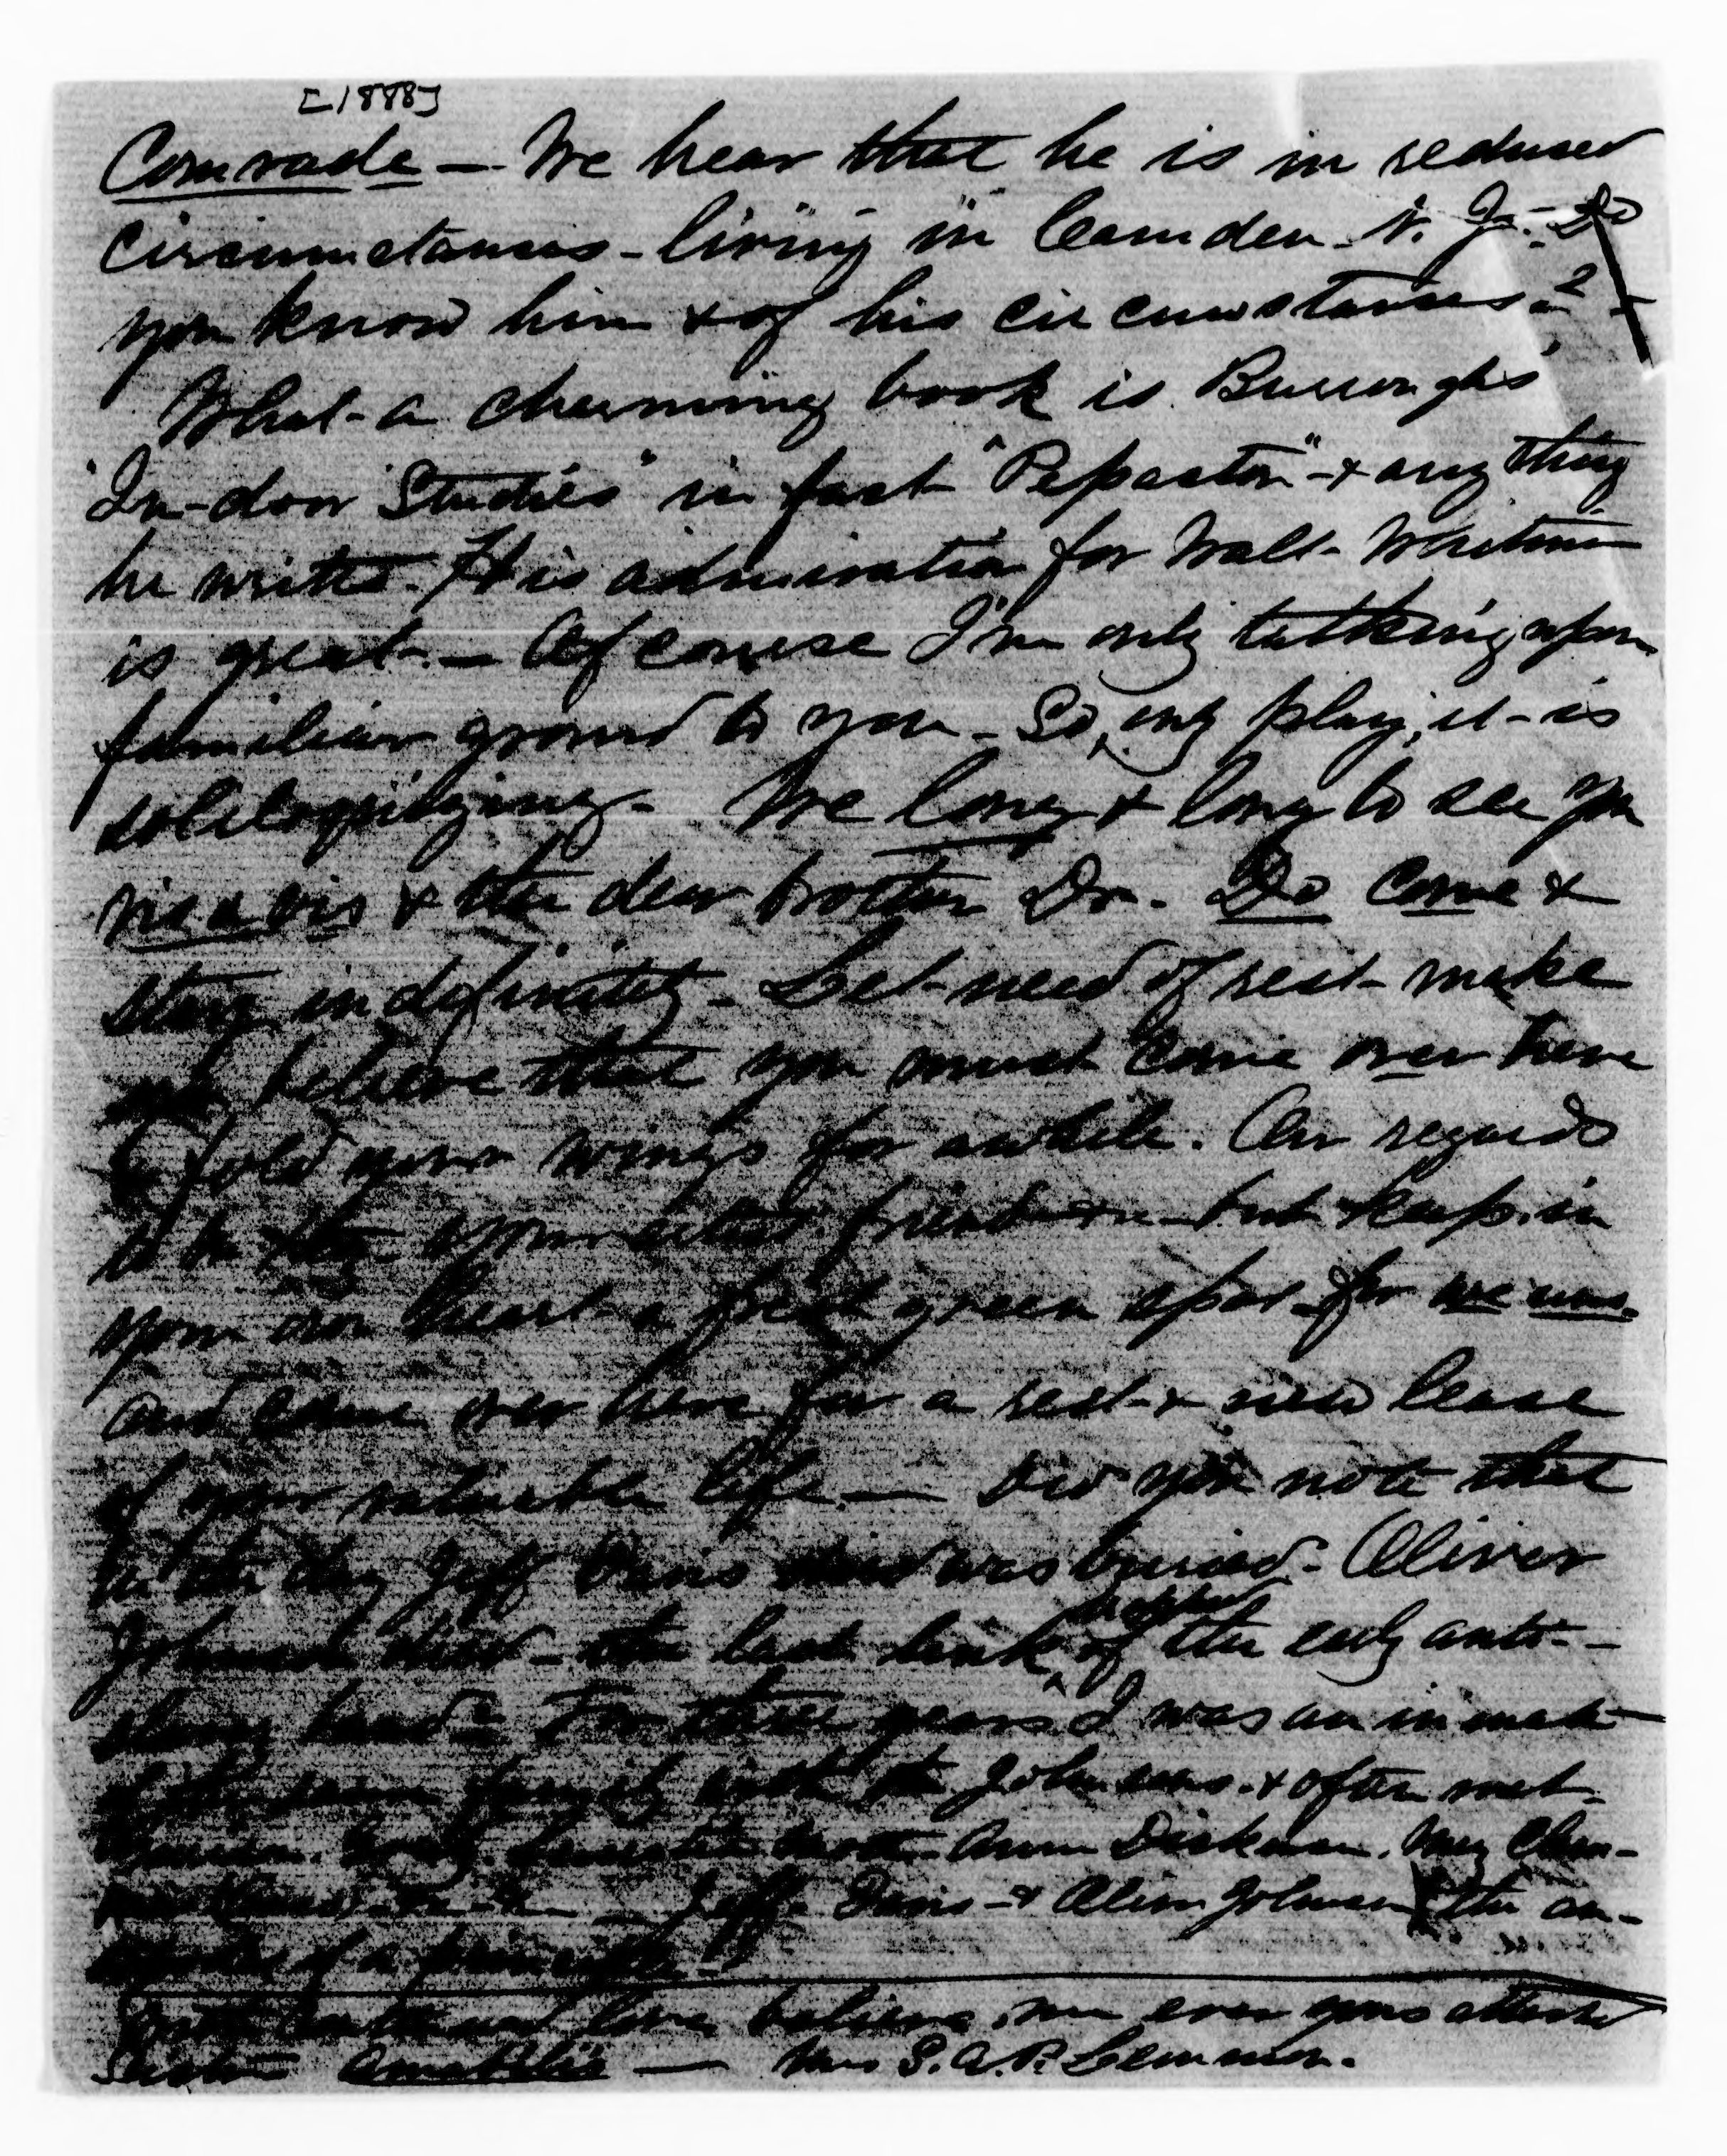 [1888]
Comrade — We hear that he is in reduced
circumstances - living in Camden N. J. - Do
you know him & of his circumstances? -
What a charming book is Burroughs'
"In-door Studies" in fact "Pepacton" - & any thing
he writes. His admiration for Walt Whitman
is great. — Of course I'm only talking upon
familiar ground to you - So, only play, it is
soliloquizing - We long & long to see you
vis a vis & the dear brother Dr. Do come &
stay indefinitely - Let need of rest make
believe that you must come over here
& fold your wings for awhile. Our regards
to the friend - but keep in
your own heart a fresh green spot for we uns.
and come over here for a rest & new lease
of your valuable life. — Did you note that
the day Jeff Davis was buried - Oliver
Johnson died - the last link of the early anti-
slavery band - For three years I was an inmate
of the same family with the Johnsons - & often met
Garrison Lucretia Mott Anna Dickinson.
Jeff Davis - & Oliver Johnson the
of a principle -
love believe me ever yours attached
Sister — Mrs S. A. P. Lemmon.